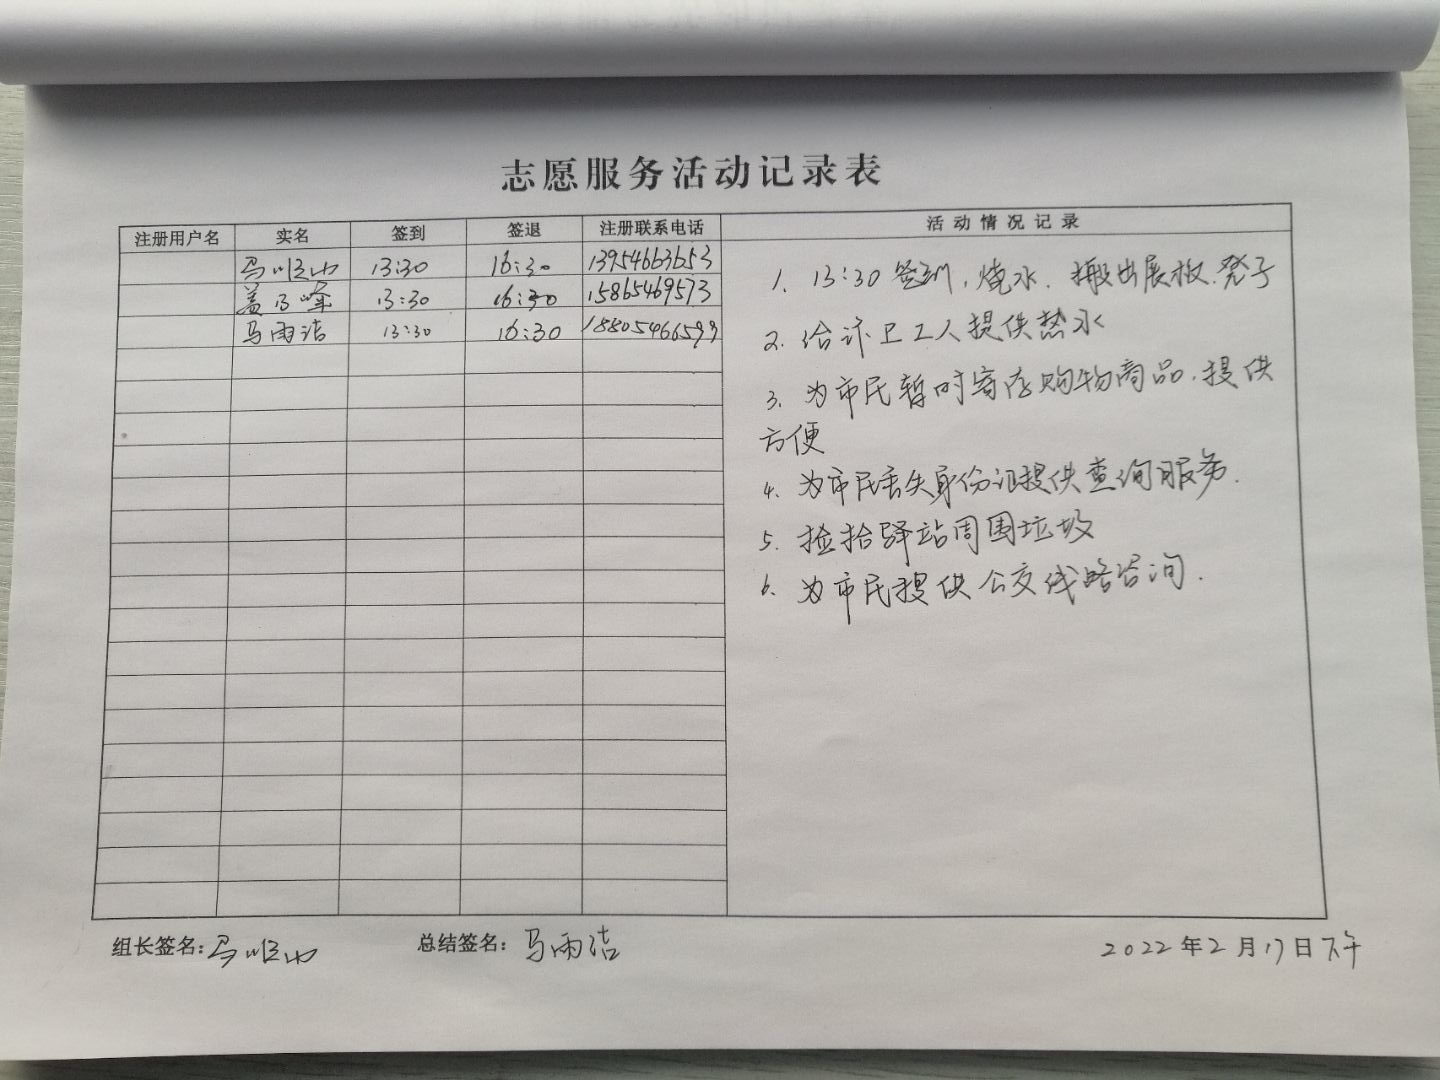 志愿服务活动记录表
注册用户名 实名 签到 签退 注册联系电话 活动情况记录
马顺山 13:30 16:30 13954663653
盖乃峰 13:30 16:30 15865469573
马雨洁 13:30 16:30 18805466599
1. 13:30签到,烧水.搬出展板.凳子
2. 给环卫工人提供热水
3. 为市民暂时寄存购物商品.提供
方便
4. 为市民丢失身份证提供查询服务.
5. 捡拾驿站周围垃圾
6. 为市民提供公交线路咨询.
组长签名:马顺山 总结签名:马雨洁 2022年2月17日下午